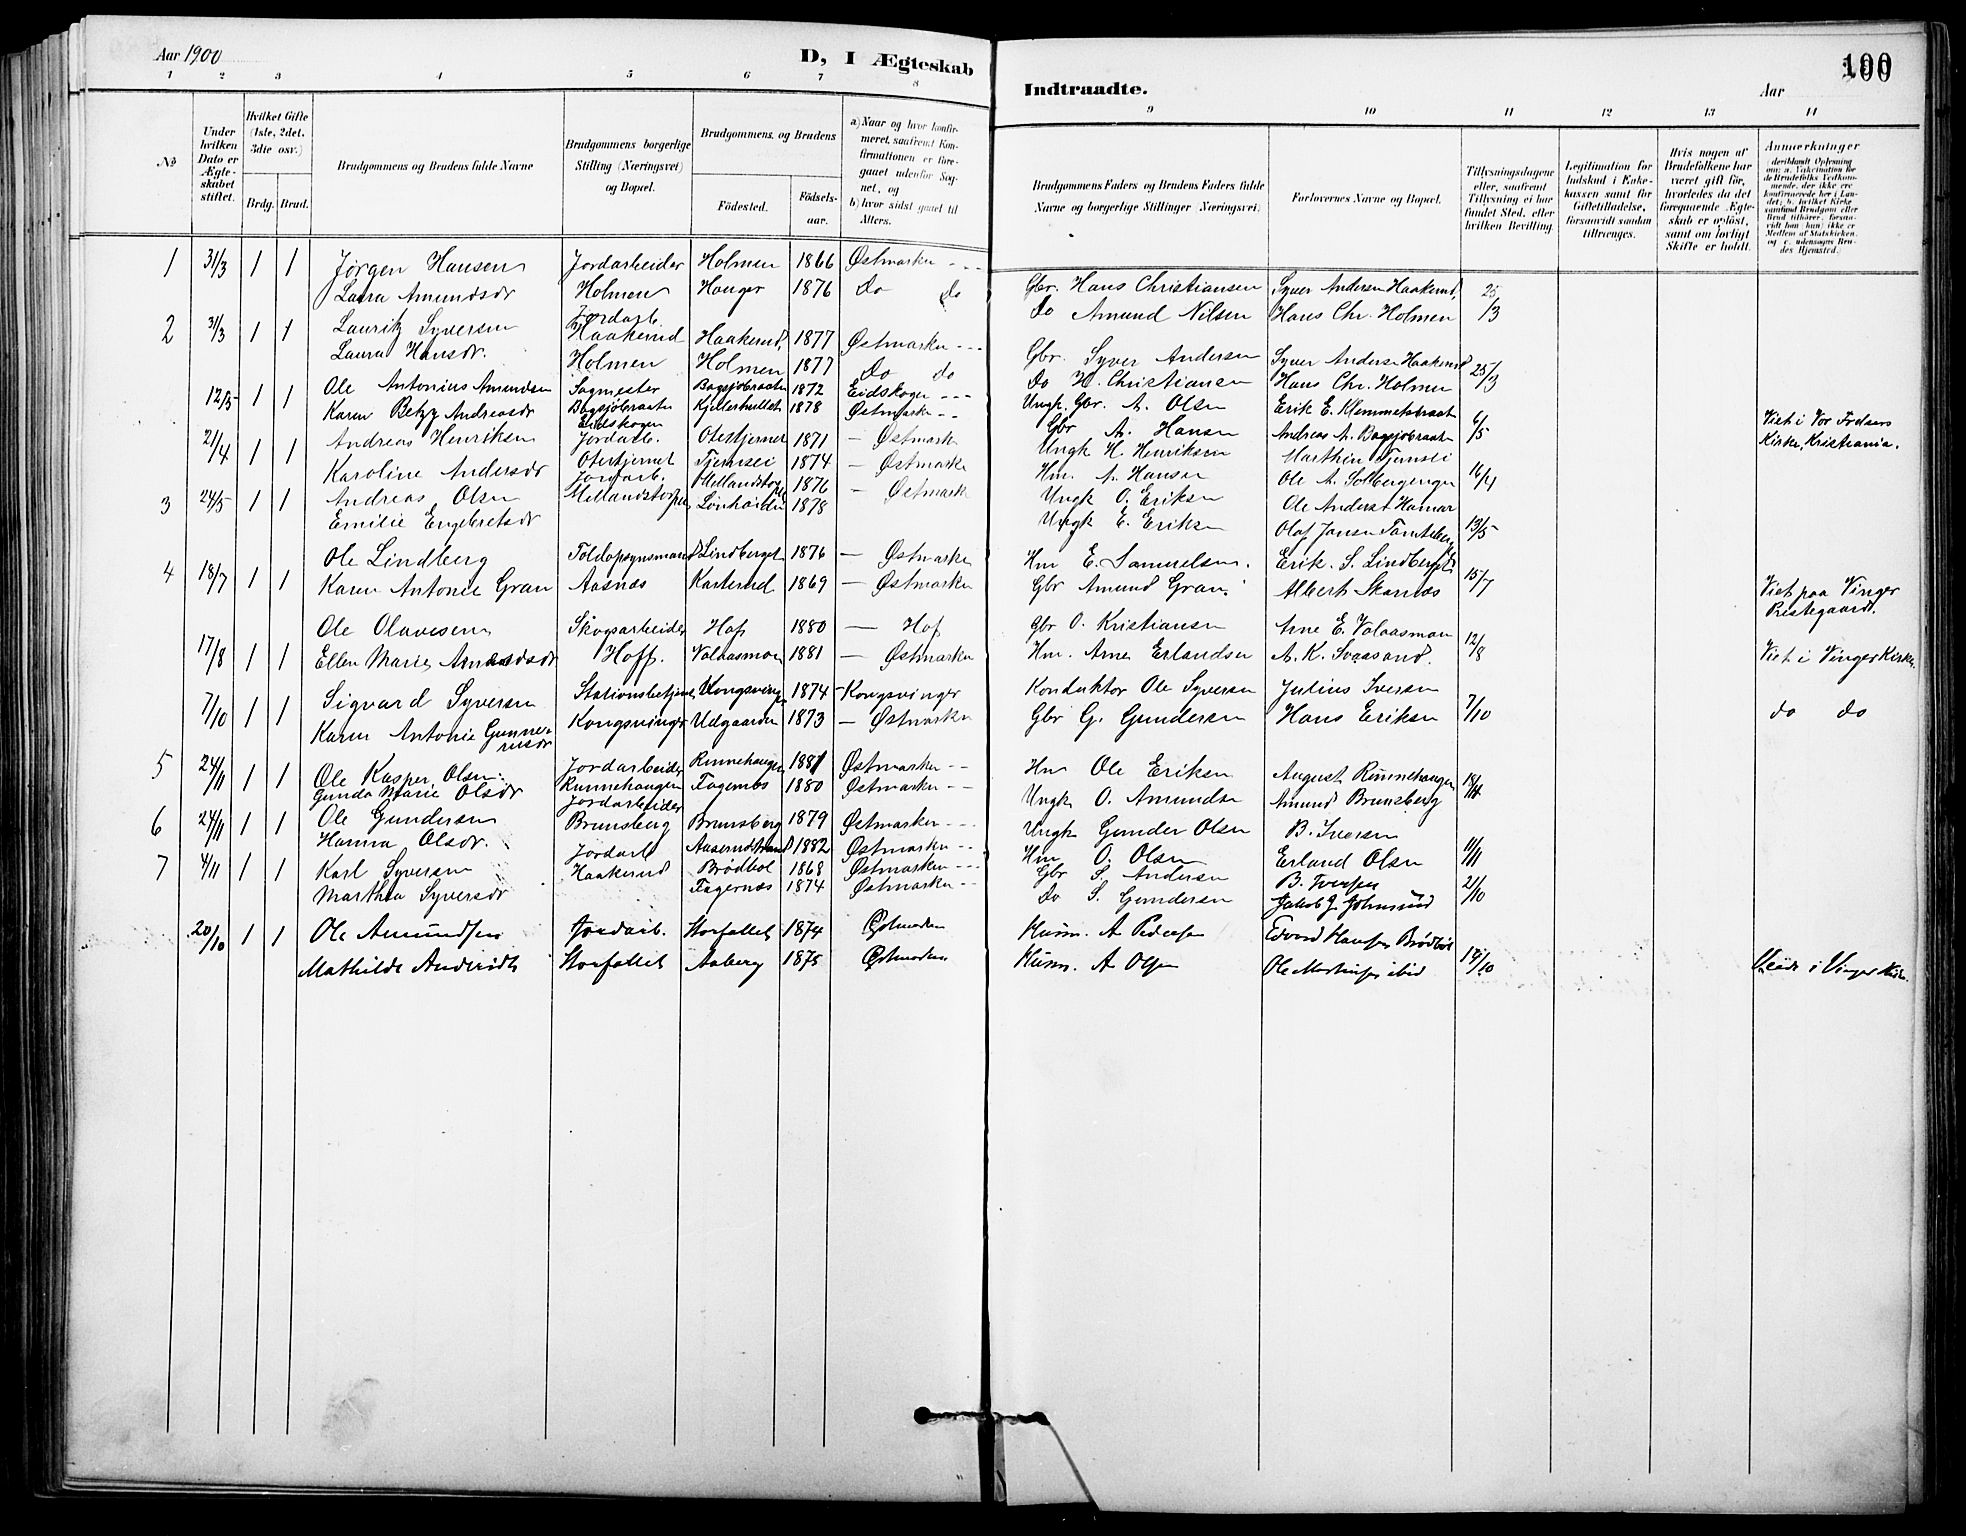 Aar 1900
D, I Ægteskab
Indtraadte.
Aar
100
1 2 3 4 5 6 7 8 9 10 11 12 13 14
No
Under hvilken Dato er Ægteskabet stiftet.
Hvilket Gifte (1ste, 2det, 3die osv.)
Brdg. Brud.
Brudgommens og Brudens fulde Navne
Brudgommens borgerlige Stilling (Næringsvei) og Bopæl.
Brudgommens og Brudens
Födested.
Födselsaar.
a) Naar og hvor konfirmeret, saafremt Konfirmationen er foregaaet udenfor Sognet, og b) hvor sidst gaaet til Alters.
Brudgommens Faders og Brudens Faders fulde Navne og borgerlige Stillinger (Næringsvei).
Forlovernes Navne og Bopæl.
Tillysningsdagene eller, saafremt Tillysning ei har fundet Sted, efter hvilken Bevilling.
Legitimation for Indskud i Enkekassen samt for Giftetilladelse, forsaavidt saadan tiltrænges.
Hvis nogen af Brudefolkene har været gift för, hvorledes da det foregaaende Ægteskab er oplöst, samt om lovligt Skifte er holdt.
Anmærkninger (deriblandt Oplysning om: a. Vakcination for de Brudefolks Vedkommende, der ikke ere konfirmerede her i Landet; b. hvilket Kirkesamfund Brudgom eller Brud tilhører, forsaavidt han (hun) ikke er Medlem af Statskirken, og c. udensogns Brudes Hjemsted.
1 31/3 1 1 Jørgen Hansen Jordarbeider Holmen 1866 Østmarken - - - Gbr. Hans Christiansen Syver Andersen Haakerud, 25
Laura Amundsdr Holmen Hauger 1876 do do Do Amund Nilsen Hans Chr. Holmen /3
2 31/3 1 1 Lauritz Syversen Jordarb. Haakerud Haakerud, 1877 Østmarken - - - Gbr. Syver Andersen Syver Andersen Haakerud 25/3
Laura Hansdr. Holmen Holmen 1877 do do Do H. Christiansen Hans Chr. Holmen
12/5 1 1 Ole Antonius Amundsen Sagmester Bogsjøbraaten 1872 Eidskogen - - - Ungk. Gbr. A. Olsen Erik E. Klemmetsbraaten 6/5 Viet i Vor Frelsers
Karen Betzy Andreasdr Bogsjøbraaten Eidskogen 1878 Østmarken - - Gbr A. Hansen Andreas A. Bogsjøbraaten Kirke, Kristiania.
21/4 1 1 Andreas Henriksen Jordarb. Otertjernet 1871 — Østmarken Ungk H. Henriksen Marthin Tjernsei 16/4
Karoline Andersdr Otertjernet Tjernsei 1874 — Østmarken Hm. A. Hansen Ole A. Solbergenger
3 24/5 1 1 Andreas Olsen Jordarb. 1876 — Østmarken Ungk O. Eriksen Ole Anders. Hamar 13/5
Emilie Engebretsdr 1878 Ungk E. Eriksen Olof Jansen
4 18/7 1 1 Ole Lindberg Toldopsynsmand Lindberget 1876 — Østmarken Hm E. Samuelsen. Erik. S. Lindberget 15/7 Viet paa Vinger
Karen Antonie Gran Aasnæs Karterud 1869 — Østmarken Gbr Amund Gran Albert Skasnæs Prestegaard.
17/8 1 1 Ole Olavesen Skogsarbeider Hof 1880 — Hof Gbr O. Kristiansen Arne E. Valaasmon 12/8
Ellen Marie Arnesdr Hoff. Valaasmoen 1881 — Østmarken Hm. Arne Erlandsen A. K. Svaasand. Viet i Vinger Kirke.
7/10 1 1 Sigvard Syversen Stationsbetjent Kongsvinger 1874 - Kongsvinger Konduktør Ole Syversen Julius Iversen 7/10 do do
Karen Antonie Gunnerusdr Kongsvinger Udgaarden 1873 — Østmarken Gbr G. Gundersen Hans Eriksen
5 24/11 1 1 Ole Kasper Olsen. Jordarbeider Runnehaugen 1881 Østmarken - - Hm Ole Eriksen August Runnehaugen 18/11
Gunda Marie Olsdr Runnehaugen Fagernæs 1880 Østmarken - - Ungk O. Amundsen Amund Brunsberg
6 24/11 1 1 Ole Gundersen Jordarbeider Brunsberg Brunsberg 1879 Østmarken - - Ungk Gunder Olsen B. Iversen 11/11
Hanna Olsdr. 1882 Østmarken - - Hm O. Olsen Erland Olsen
7 4/11 1 1 Karl Syversen Jordarb Haakerud Brødbøl 1868 Østmarken - - Gbr S. Andersen B. Iversen 21/10
Marthea Syversdr Fagernæs 1874 Østmarken - - Do S. Gundersen Jakob J. Johnsrud
20/10 1 1 Ole Amundsen Jordarb. Storfallet 1874 Østmarken Husm. A Pedersen Edvard Hansen Brødbøl 14/10
Mathilde Andersdtr Storfallet Aaberg 1875 Østmarken Husm. A Olsen Ole Martinsen ibid Viede i Vinger Kirke.